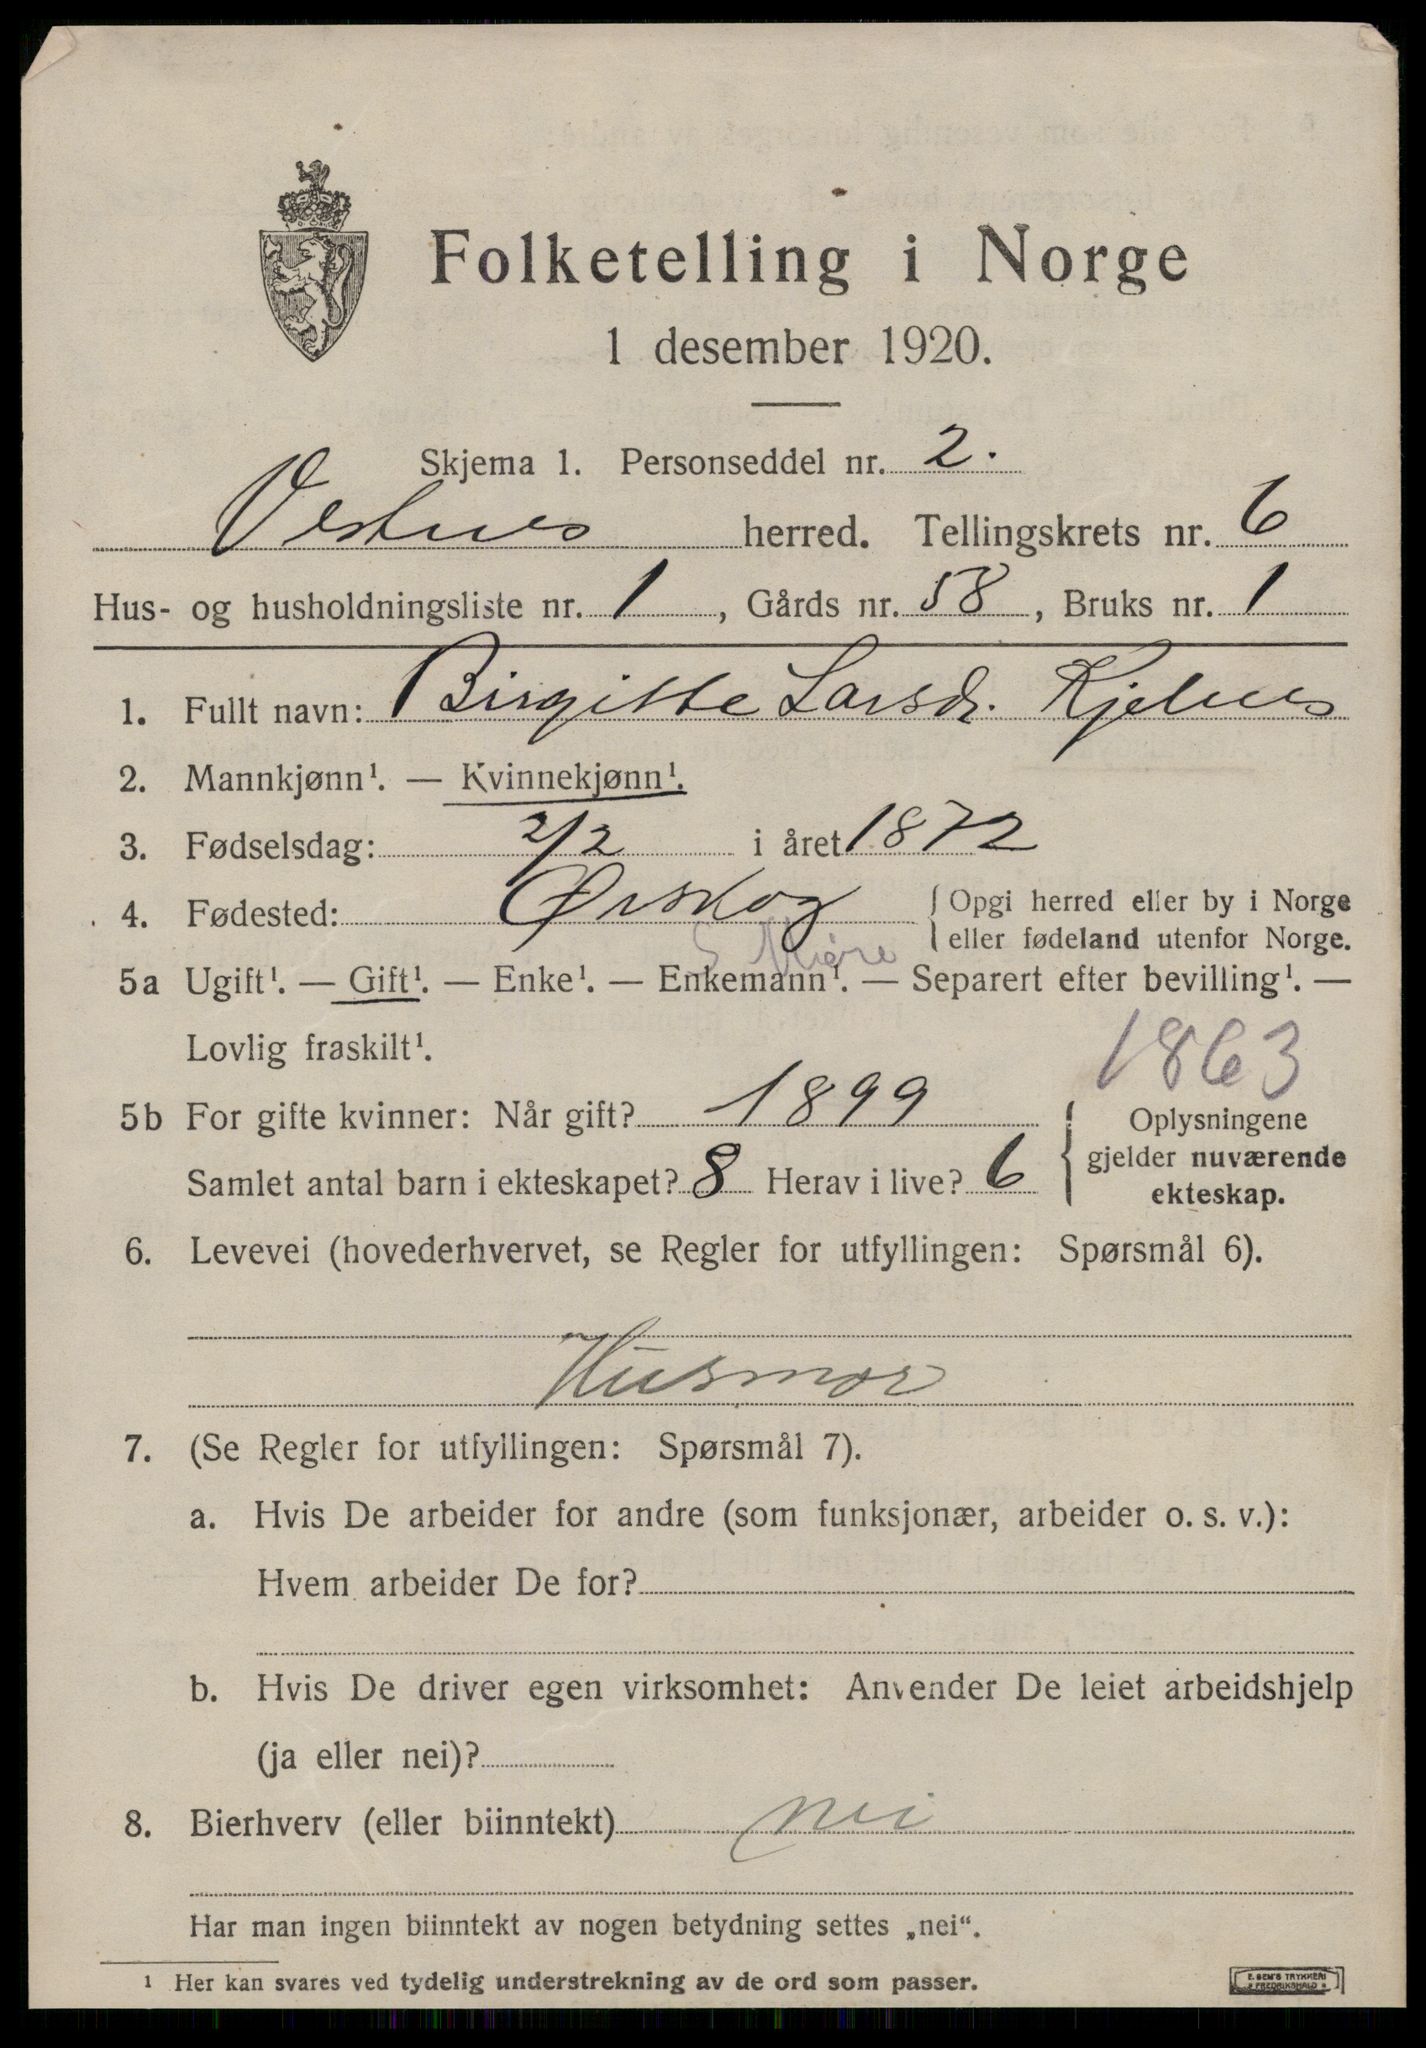 Folketelling i Norge
1 desember 1920.
Skjema 1. Personseddel nr. 2.
Vestnes herred. Tellingskrets nr. 6
Hus- og husholdningsliste nr. 1, Gårds nr. 58, Bruks nr. 1
1. Fullt navn: Birgitte Larsdr. Kjelnes
2. Mannkjønn¹. — Kvinnekjønn¹.
3. Fødselsdag: 2/2 i året 1872
4. Fødested: Ørskog { Opgi herred eller by i Norge
eller fødeland utenfor Norge.
S Møre
5a Ugift¹. — Gift¹. — Enke¹. — Enkemann¹. — Separert efter bevilling¹. —
Lovlig fraskilt¹.
1863
5b For gifte kvinner: Når gift? 1899
Samlet antal barn i ekteskapet? 8 Herav i live? 6
{ Oplysningene
gjelder nuværende
ekteskap.
6. Levevei (hovederhvervet, se Regler for utfyllingen: Spørsmål 6).
Husmor
7. (Se Regler for utfyllingen: Spørsmål 7).
a. Hvis De arbeider for andre (som funksjonær, arbeider o. s. v.):
Hvem arbeider De for?
b. Hvis De driver egen virksomhet: Anvender De leiet arbeidshjelp
(ja eller nei)?
8. Bierhverv (eller biinntekt) nei
Har man ingen biinntekt av nogen betydning settes „nei“.
¹ Her kan svares ved tydelig understrekning av de ord som passer.
E. SEM'S TRYKKERI
* FREDRIKSHALD *